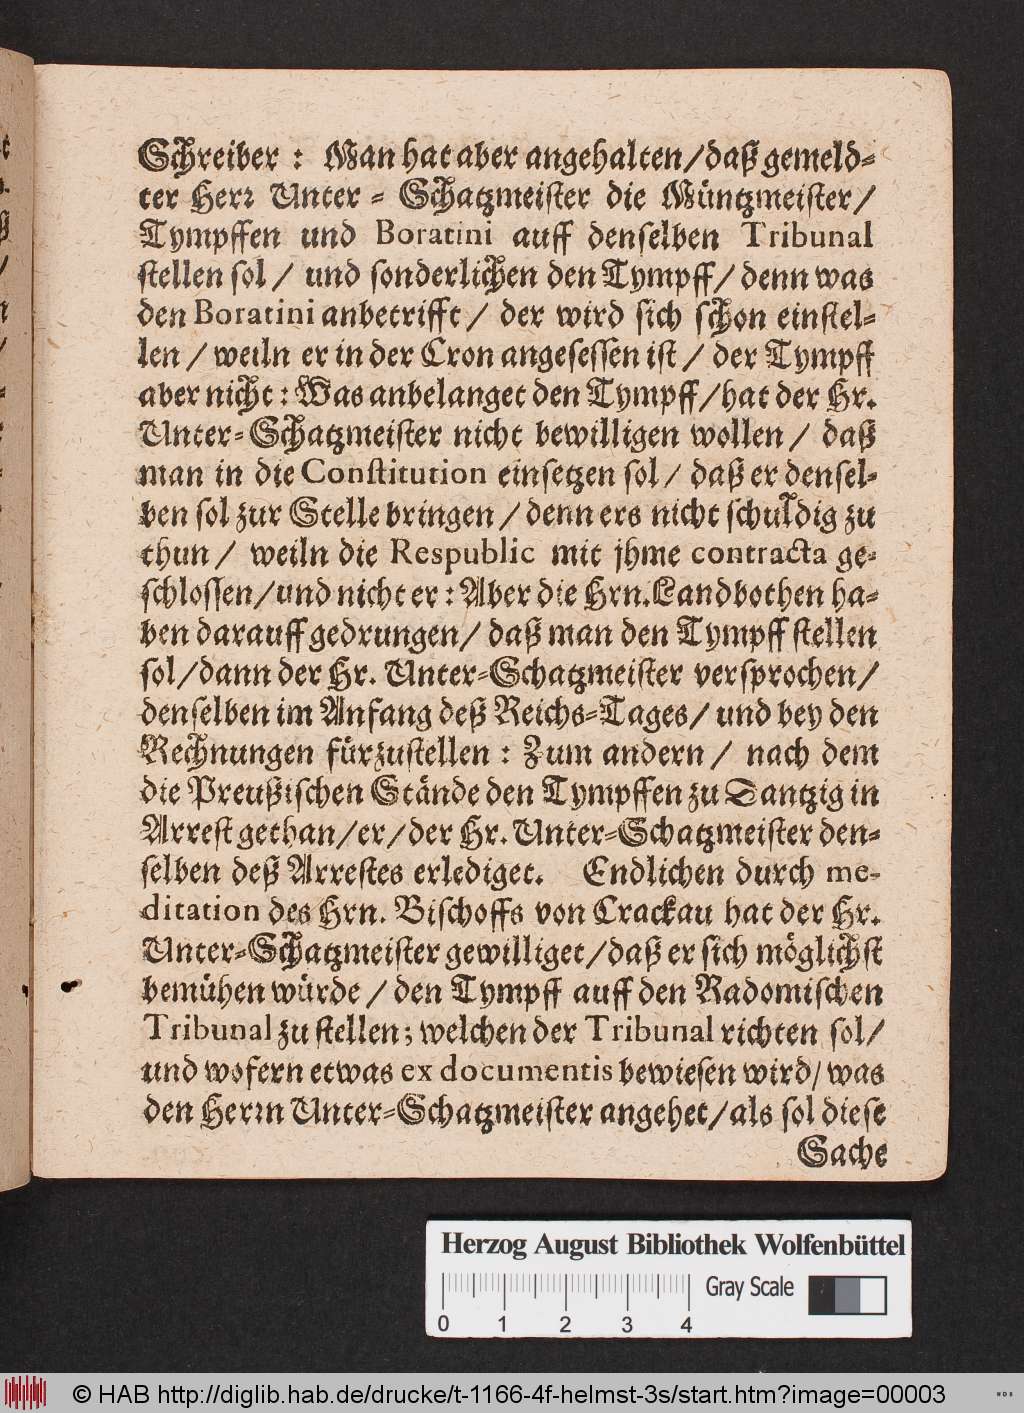 Schreiber : Man hat aber angehalten/daß gemeld=
ter Herr Unter = Schatzmeister die Müntzmeister/
Tympffen und Boratini auff denselben Tribunal
stellen sol / und sonderlichen den Tympff/ denn was
den Boratini anbetrifft / der wird sich schon einstel=
len / weiln er in der Cron angesessen ist / der Tympff
aber nicht : Was anbelanget den Tympff/hat der Hr.
Unter=Schatzmeister nicht bewilligen wollen / daß
man in die Constitution einsetzen sol/ daß er densel=
ben sol zur Stelle bringen / denn ers nicht schuldig zu
thun / weiln die Respublic mit jhme contracta ge=
schlossen/und nicht er : Aber die Hrn. Landbothen ha=
ben darauff gedrungen/ daß man den Tympff stellen
sol/dann der Hr. Unter=Schatzmeister versprochen/
denselben im Anfang deß Reichs=Tages/ und bey den
Rechnungen fürzustellen : Zum andern / nach dem
die Preußischen Stände den Tympffen zu Dantzig in
Arrest gethan/er/der Hr. Unter=Schatzmeister den=
selben deß Arrestes erlediget. Endlichen durch me-
ditation des Hrn. Bischoffs von Crackau hat der Hr.
Unter=Schatzmeister gewilliget/daß er sich möglichst
bemühen würde / den Tympff auff den Radomischen
Tribunal zu stellen; welchen der Tribunal richten sol/
und wofern etwas ex documentis bewiesen wird/ was
den Herrn Unter=Schatzmeister angehet/als sol diese
Sache
Herzog August Bibliothek Wolfenbüttel
Gray Scale
0 1 2 3 4
© HAB http://diglib.hab.de/drucke/t-1166-4f-helmst-3s/start.htm?image=00003